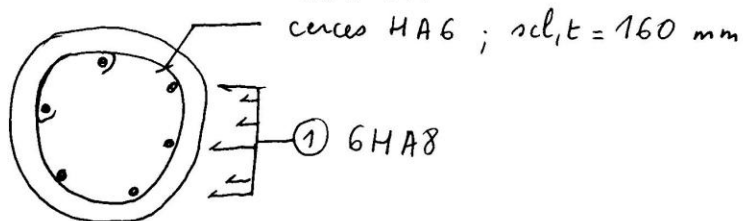 cerces HA6 ; scl,t = 160 mm
① 6HA8